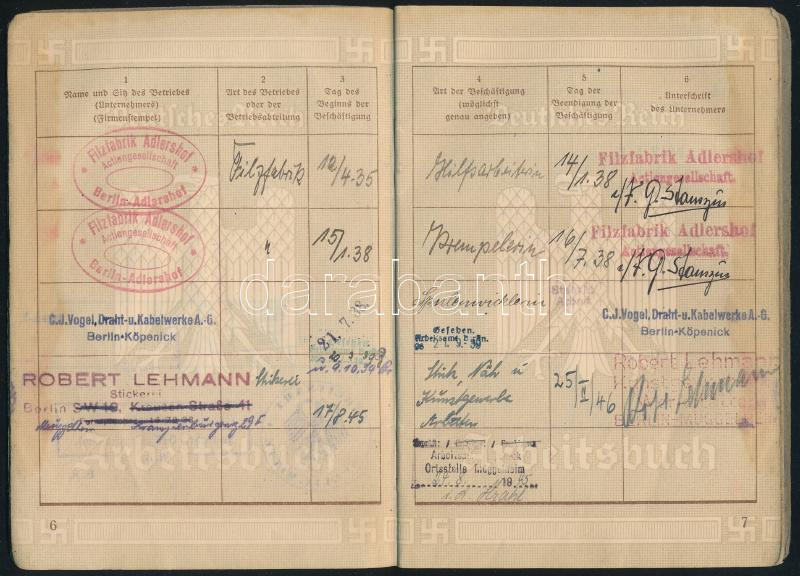 Deutsches Reich
1
Name und Sitz des Betriebes
(Unternehmers)
(Firmenstempel)
2
Art des Betriebes
oder der
Betriebsabteilung
3
Tag des
Beginns der
Beschäftigung
Filzfabrik Adlershof
Actiengesellschaft
Berlin-Adlershof
Filzfabrik
/4-35
Filzfabrik Adlershof
Actiengesellschaft
Berlin-Adlershof
"
15/1.38
C.J.Vogel, Draht-u.Kabelwerke A.-G.
Berlin-Köpenick
21.7.38
ROBERT LEHMANN
Stickerei
Stickerei
Berlin SW 19, Krausen-Straße 11
17/8.45
Arbeitsbuch
6
Deutsches Reich
4
Art der Beschäftigung
(möglichst
genau angeben)
5
Tag der
Beendigung der
Beschäftigung
6
Unterschrift
des Unternehmers
Hilfsarbeiterin
14/1.38
Filzfabrik Adlershof
Actiengesellschaft.
Krempelerin
16/7.38
Filzfabrik Adlershof
Actiengesellschaft.
Spulenwicklerin
C.J.Vogel, Draht-u.Kabelwerke A.-G.
Berlin-Köpenick
Gesehen.
Stick, Näh u
Kunstgewerbe
Arbeiten
25/II 46
Robert Lehmann
Lehmann
Ortsstelle Müggelheim
Arbeitsbuch
7
darabanth